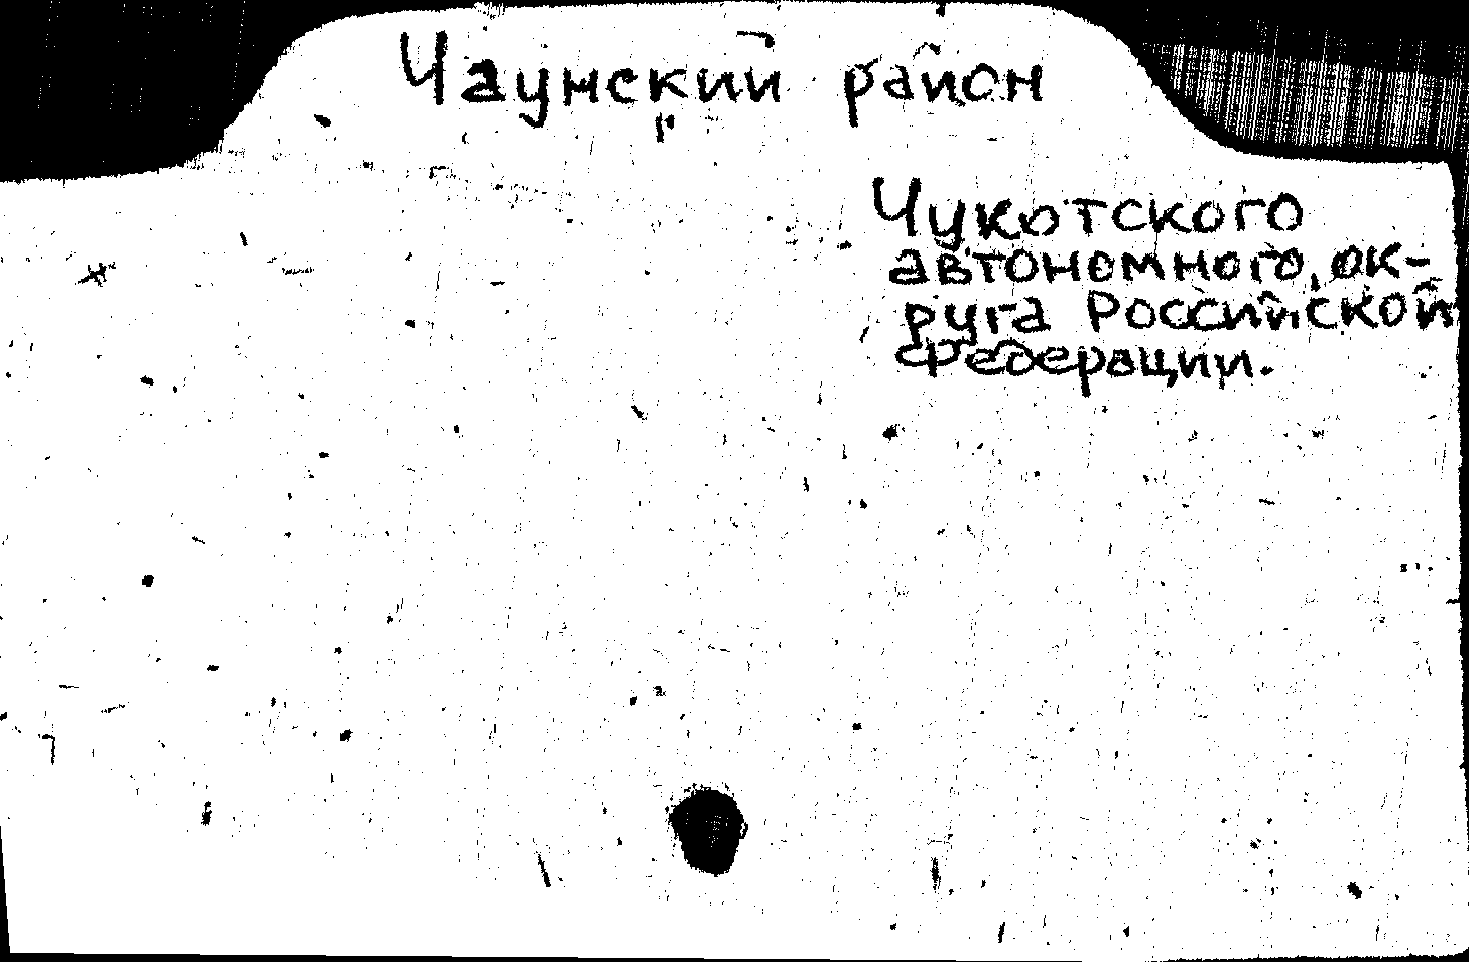 Чаунский район
Чукотского
автономного ок-
руга Российской
Федерации.